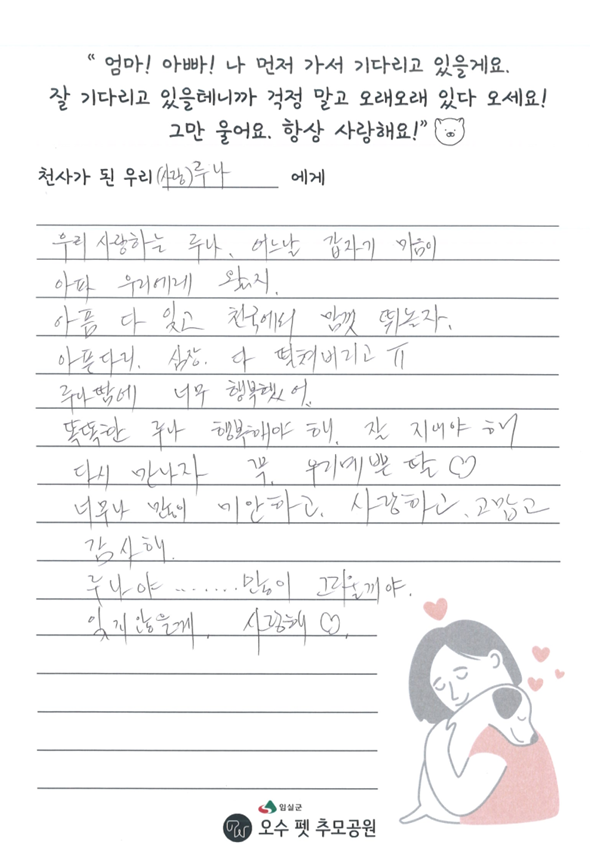 “ 엄마! 아빠! 나 먼저 가서 기다리고 있을게요.
잘 기다리고 있을테니까 걱정 말고 오래오래 있다 오세요!
그만 울어요. 항상 사랑해요!”
천사가 된 우리 (사랑)루나 에게
우리 사랑하는 루나. 어느날 갑자기 마음이
아파 우리에게 왔지.
아픔 다 잊고 천국에서 맘껏 뛰놀자.
아픈다리. 심장. 다 떨쳐버리고 ㅠ
루나땜에 너무 행복했어.
똑똑한 루나 행복해야 해. 잘 지내야 해
다시 만나자 꼭. 우리예쁜 딸 ♡
너무나 많이 미안하고. 사랑하고. 고맙고
감사해.
루나야 ........ 많이 그리울꺼야.
잊지않을게. 사랑해 ♡.
임실군
오수 펫 추모공원